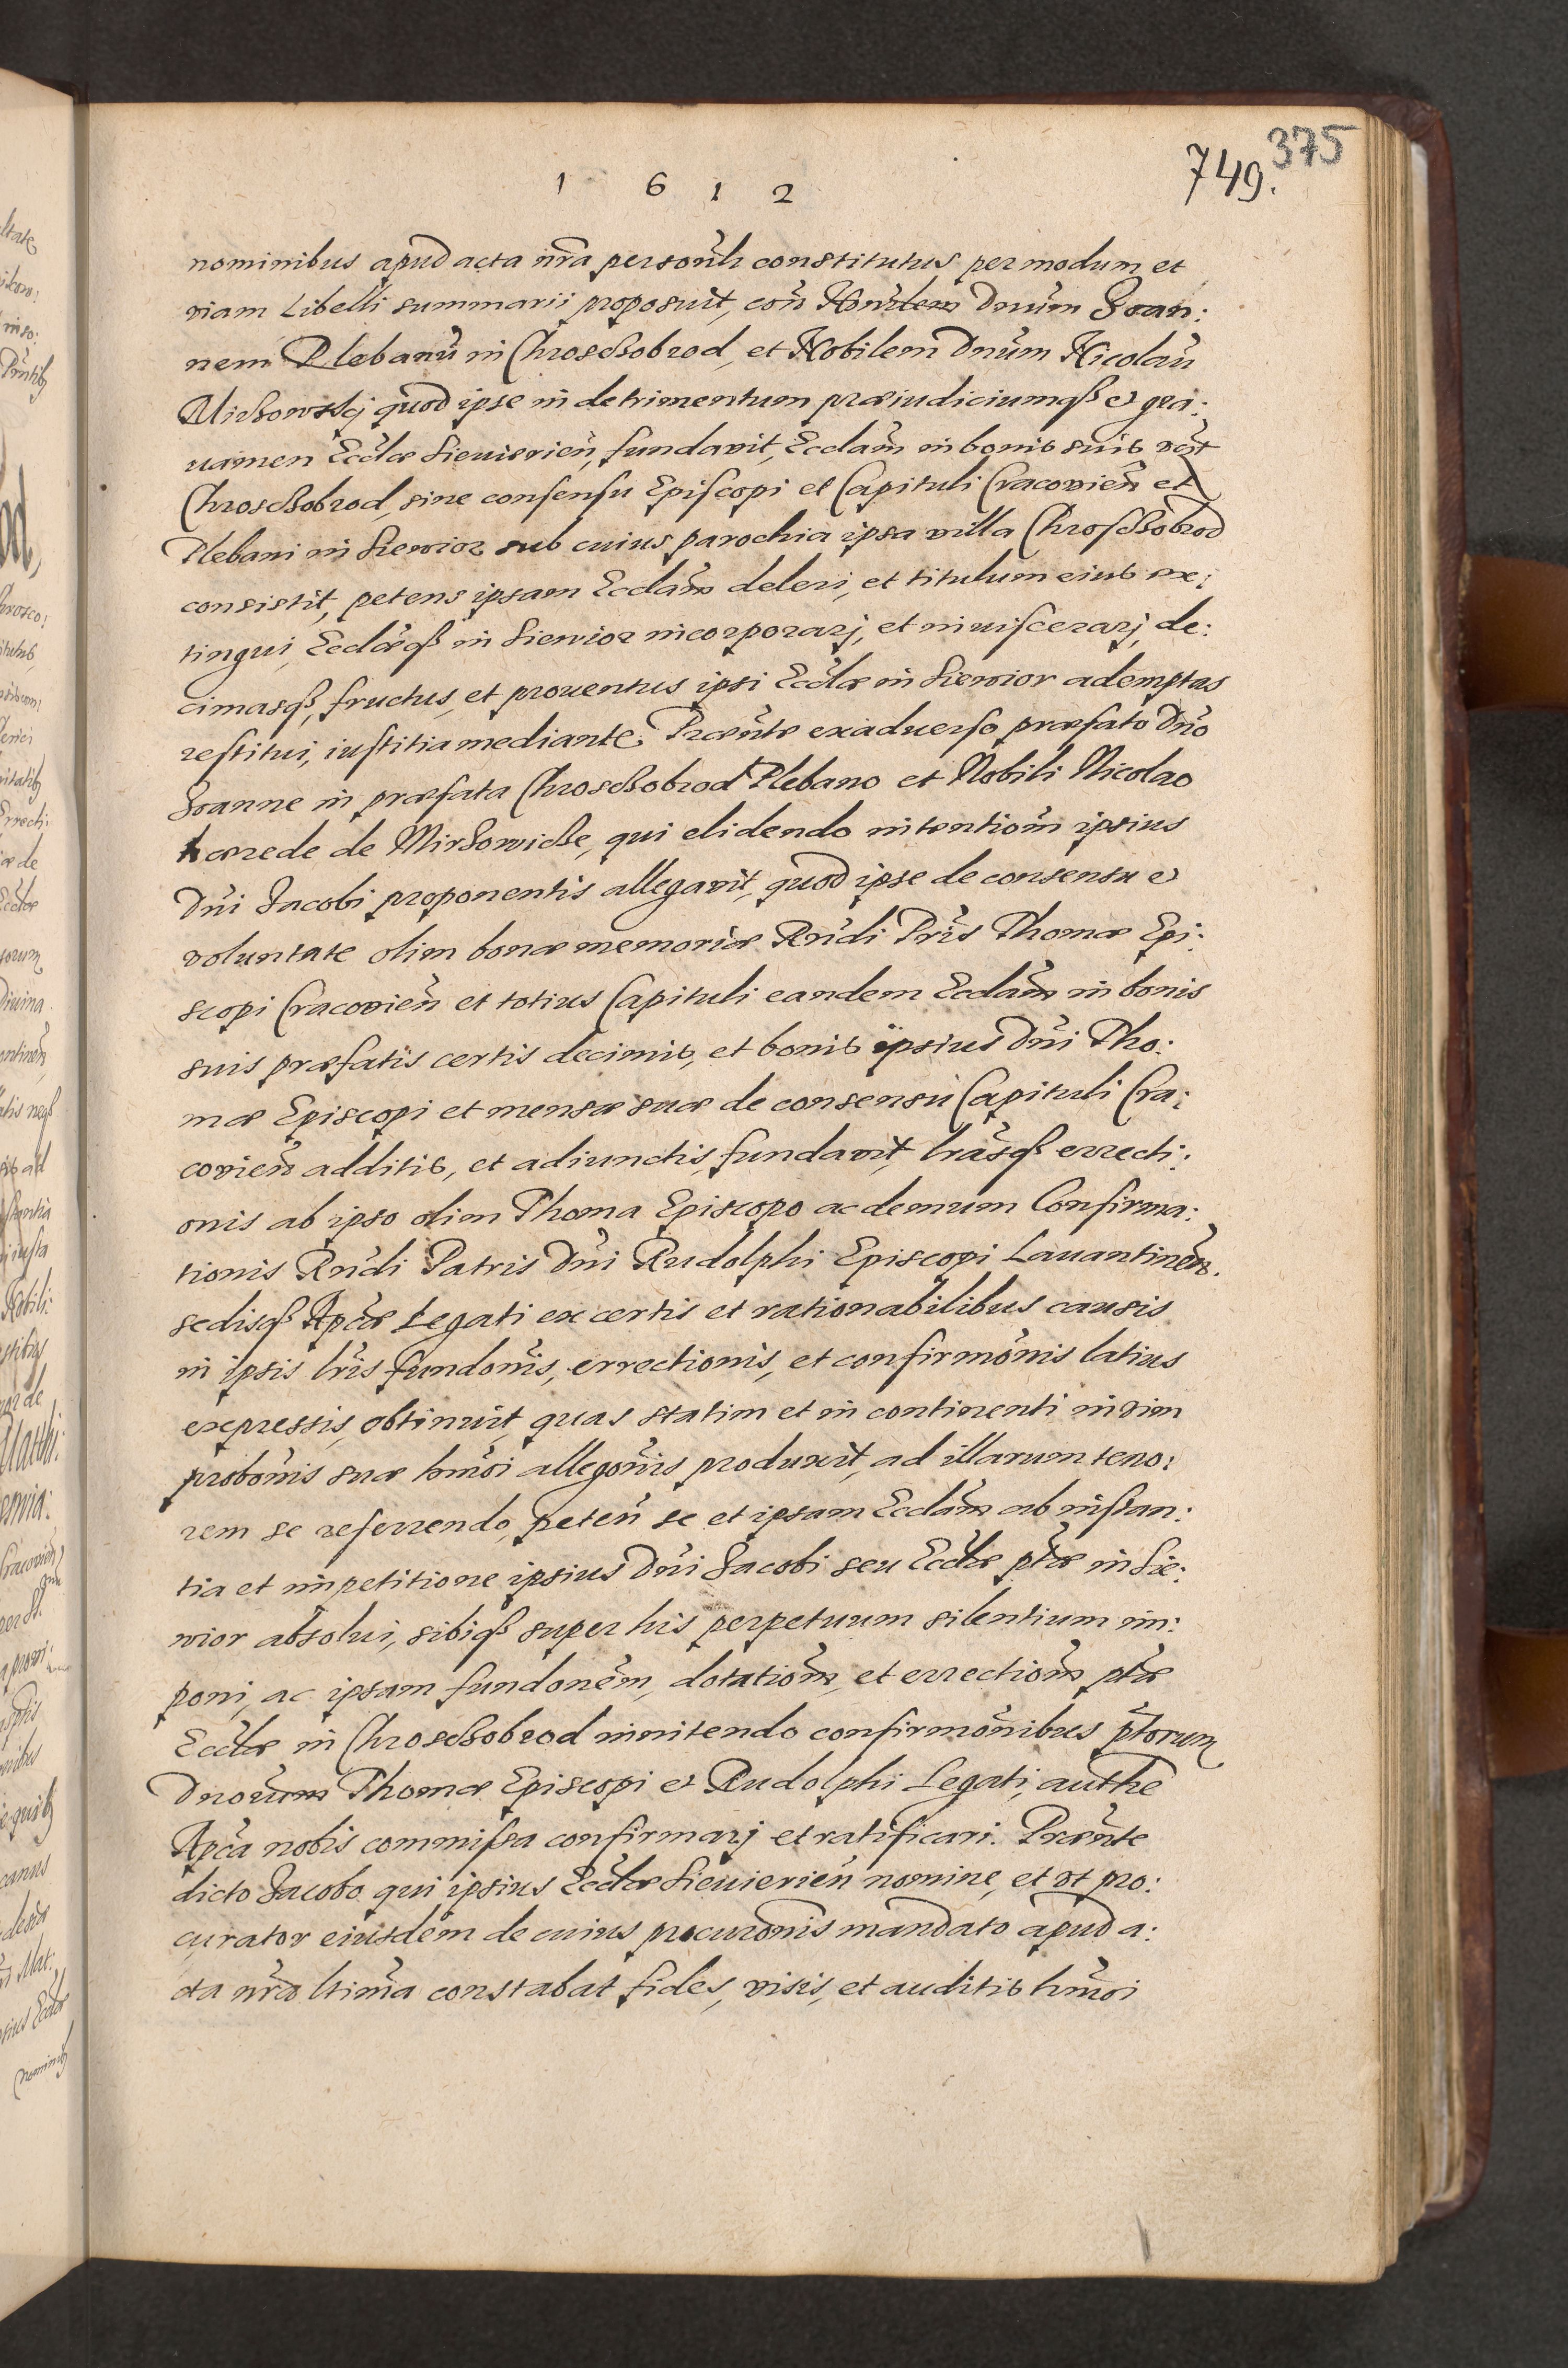 375
749.
1 6 1 2
nominibus apud acta nr̃a personlr̃ constitutus per modum et
viam Libelli summarii proposuit, con̄ Honrlem Dnūm Joan:
nem Plebanū in Chroschobrod, et Nobilem Dnūm Nicolaū
quod ipse in detrimentum præiudiciumqȝ et gra:
uamen Eccl̃æ Sieuierien̄, fundavit, Eccl̃am in bonis suis vc̃t
Chroschobrod, sine consensu Episcopi et Capituli Cracovien̄ et
Plebani in Siewior sub cuius parochia ipsa villa Chroschobrod
consistit, petens ipsam Eccl̃am deleri, et titulum eius ex:
tingui, Eccl̃æqȝ in Siewior incorporarj, et inuiscerarj, de:
cimasqȝ, fructus, et prouentus ipsi Eccl̃æ in Siewior ademptas
restitui, iustitia mediante. Præn̄te exaduerso præfato Dn̄o
Joanne in præfata Chroschobrod Plebano et Nobili Nicolao
hærede de Mirzowicze, qui elidendo intentiom̄ ipsius
Dn̄i Jacobi proponentis allegavit, quod ipse de consensu et
voluntate olim bonæ memoriæ Rn̄di Pr̄is Thomæ Epi:
scopi Cracovien̄ et totius Capituli eandem Eccl̃am in bonis
suis præfatis certis decimis, et bonis ipsius Dn̄i Tho:
mæ Episcopi et mensæ suæ de consensu Capituli Cra:
covien̄ additis, et adiunctis, fundavit, lr̃asqȝ errecti:
onis ab ipso olim Thoma Episcopo ac demum Confirma:
tionis Rn̄di Patris Dn̄i Rudolphi Episcopi Lauantinen̄.
sedisqȝ Apc̃æ Legati ex certis et rationabilibus causis
in ipsis lr̃is fundon̄is, errectionis, et confirmon̄is latius
expressis, obtinuit, quas statim et in continenti in vim
probon̄is suæ hmōi allegon̄is produxit, ad illarum teno:
rem se referrendo, peten̄ se et ipsam Eccl̃am ab instan:
tia et impetitione ipsius Dn̄i Jacobi seu Eccl̃æ pt̃æ in Sie:
wior absolui, sibiqȝ super his perpetuum silentium im:
poni, ac ipsam fundonēm, dotatiom̄, et errectiom̄ pt̃æ
Eccl̃æ in Chroschobrod innitendo confirmon̄ibus pt̃orum
Dnorum Thomæ Episcopi et Rudolphi Legati, authe
Apc̃a nobis commissa confirmarj et ratificari. Præn̄te
dicto Jacobo qui ipsius Eccl̃æ Sieuierien̄ nomine, et vt pro:
curator eiusdem de cuius procuron̄is mandato apud a:
cta nr̃a ltim̄a constabat fides, visis, et auditis hmōi